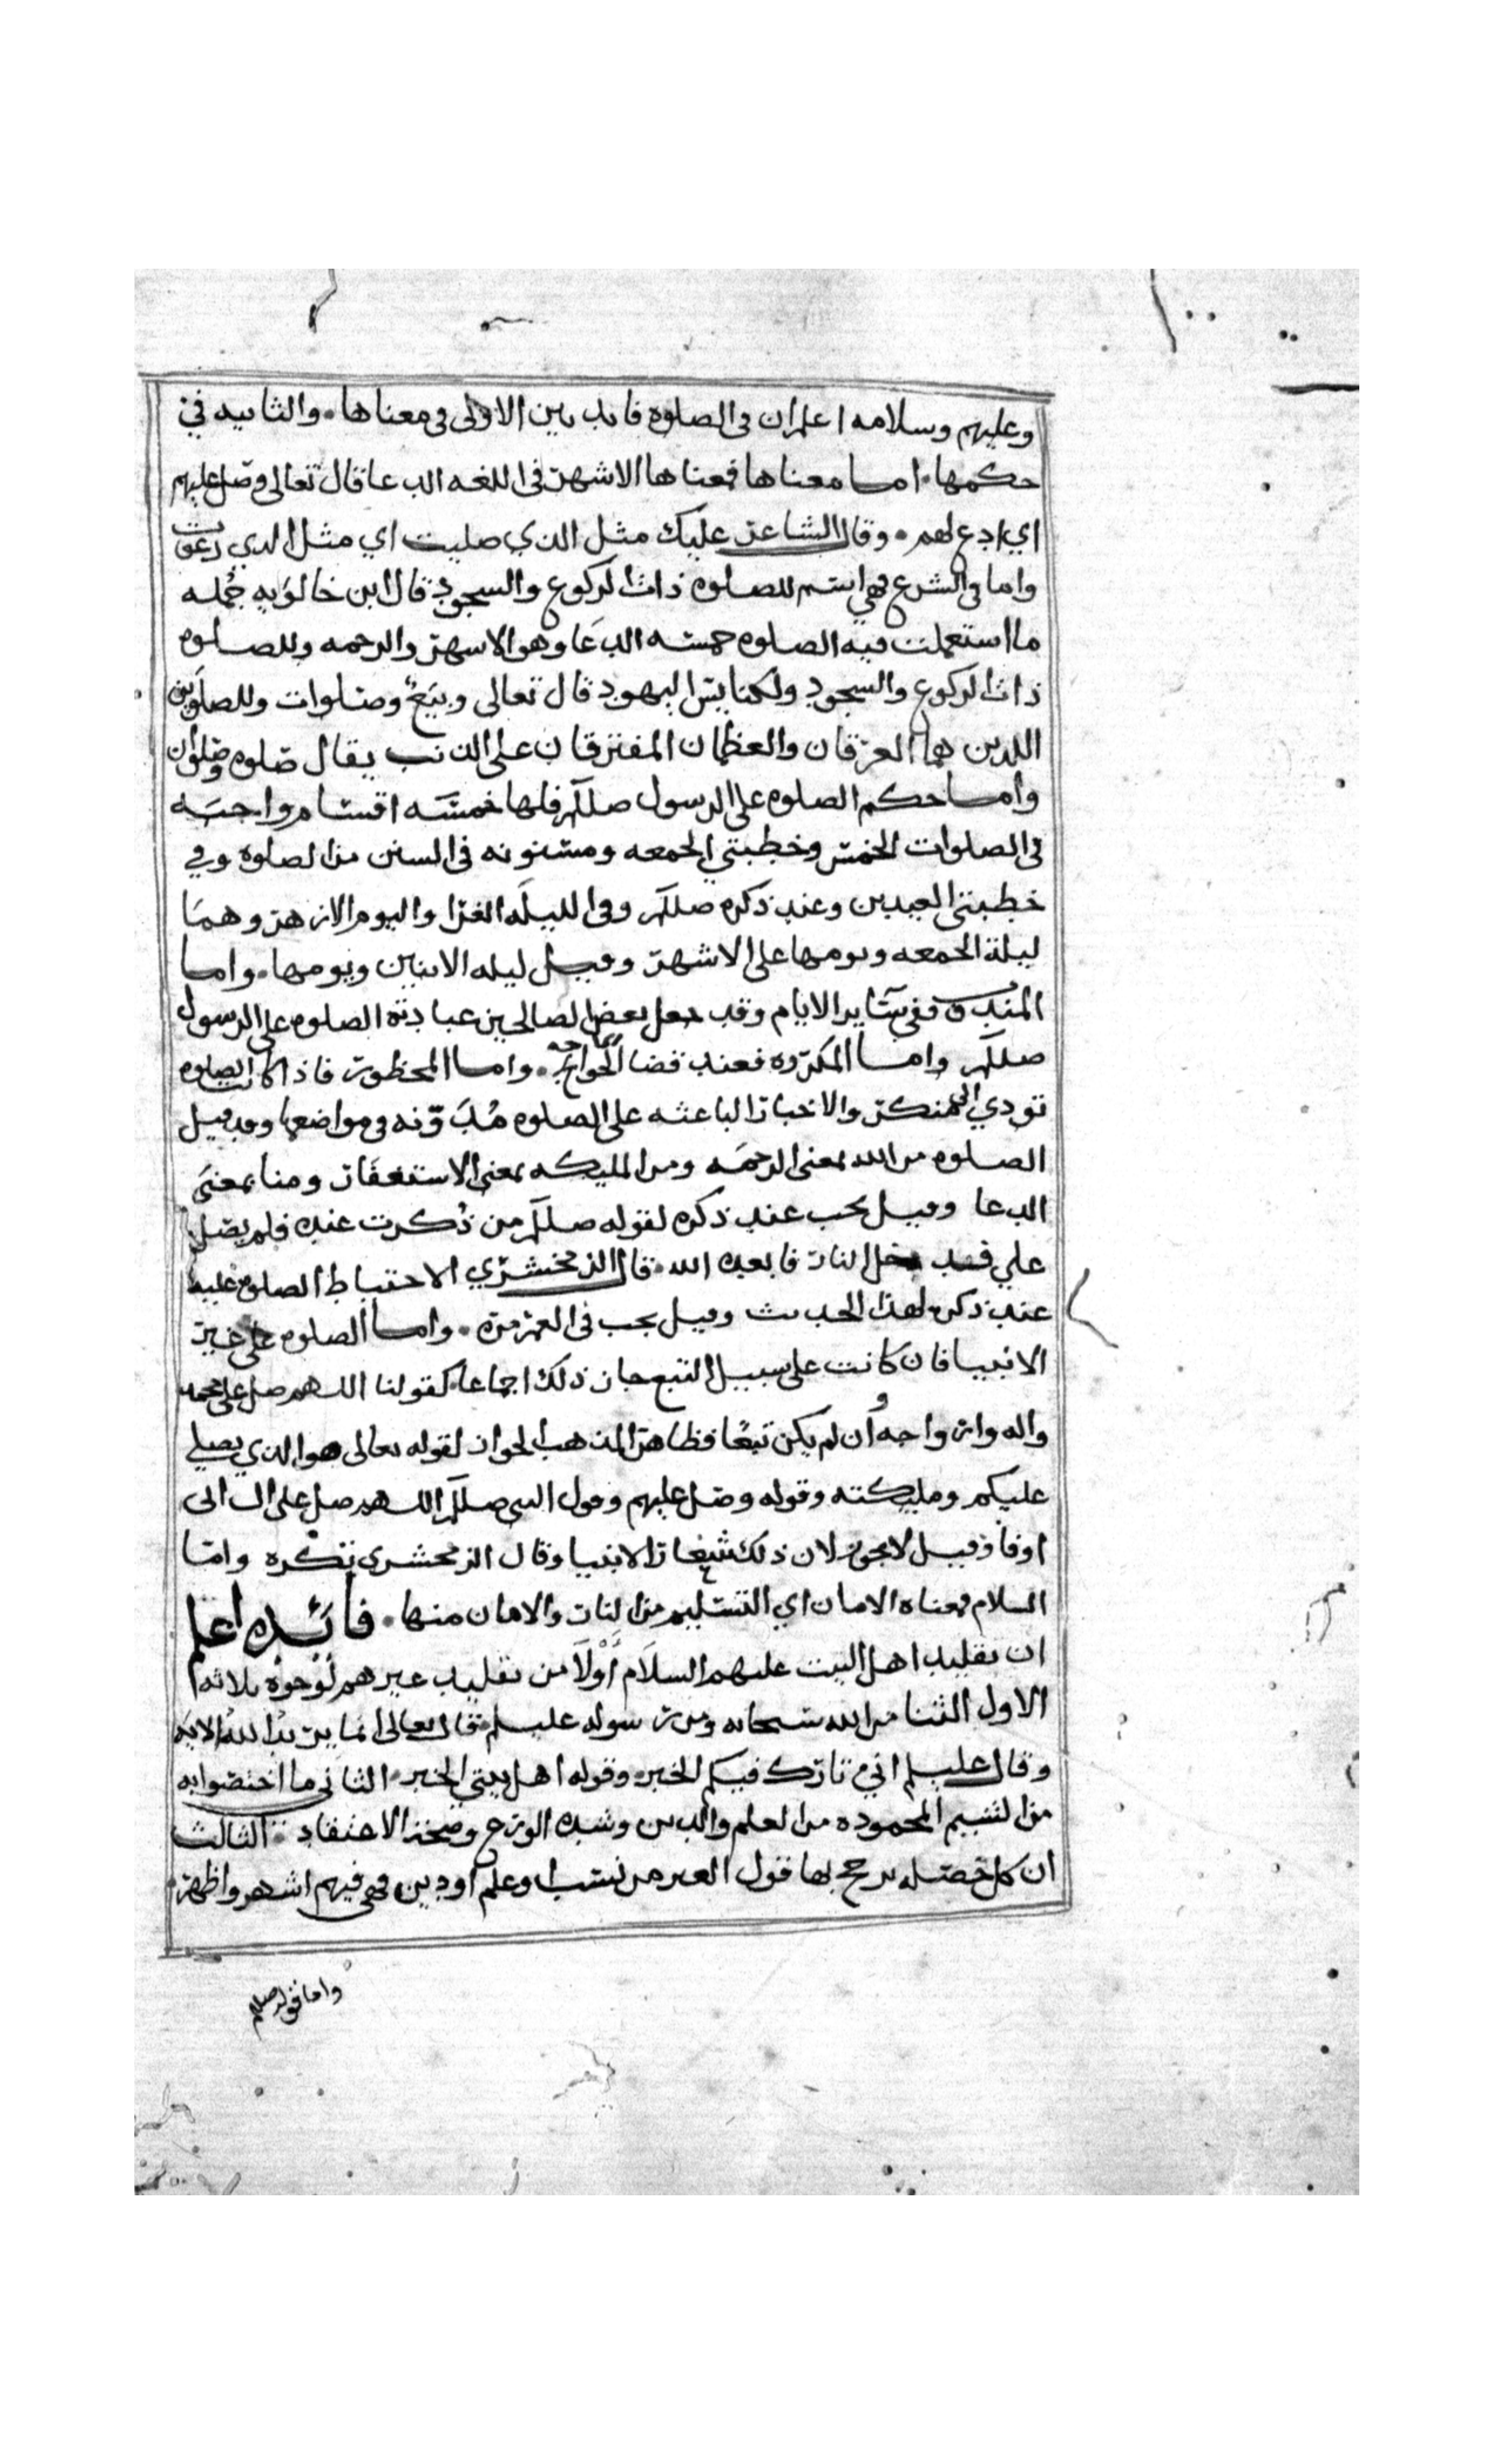 وعليهم وسلامه اعلم ان في الصلوه فايدتين الاولى في معناها . والثانيه في
حكمها . اما معناها فمعناها الاشهر في اللغه الدعا قال تعالى وصل عليهم
اي ادع لهم . وقال الشاعر عليك مثل الذي صليت اي مثل الدي دعوت
واما في الشرع فهي اسم للصلوه ذات الركوع والسجود قال ابن خالويه جمله
ما استعملت فيه الصلوه خمسه الدعا وهو الاشهر والرحمه وللصلوه
ذات الركوع والسجود ولكنايس اليهود قال تعالى وبيع وصلوات وللصلوين
اللدين هما العرقان والعظمان المفترقان على الذنب يقال صلوه وصلوان
واما حكم الصلوه على الرسول صللم فلها خمسه اقسام واجبه
في الصلوات الخمس وخطبتي الجمعه ومسنونه في السنن من الصلوه وفي
خطبتي العيدين وعند ذكره صللم وفي الليله الغرا واليوم الازهر وهما
ليلة الجمعه ويومها على الاشهر وقيل ليله الاثنين ويومها . واما
المندوب ففي ساير الايام وقد جعل بعض الصالحين عبادته الصلوه على الرسول
صللم واما المكروه فعند قضا الحاجه . واما المحظور فاذا كانت الصلوه
تودي الى منكر والاخبار الباعثه على الصلوه مدونه في مواضعها وقد قيل
الصلوه من الله بمعنى الرحمه ومن المليكه بمعنى الاستغفار ومنا بمعنى
الدعا وقيل يجب عند ذكره لقوله صللم من ذكرت عنده فلم يصل
علي فدخل النار فابعده الله . قال الزمخشري الاحتياط الصلوه عليه
عند ذكره لهذا الحديث وقيل يجب في العمر مره . واما الصلوه على غير
الانبيا فان كانت على سبيل التبع جاز ذلك اجماعا كقولنا اللهم صل على محمد
واله وازواجه وان لم يكن تبعا فظاهر المذهب الجواز لقوله تعالى هو الذي يصلي
عليكم ومليكته وقوله وصل عليهم وقول النبي صللم اللهم صل على ال ابى
اوفا وقيل لا يجوز لان ذلك شعار الانبيا وقال الزمخشري يكره واما
السلام فمعناه الامان اي التسليم من النار والامان منها . فايده اعلم
ان تقليد اهل البيت عليهم السلام اولا من تقليد غيرهم لوجوه ثلاثه
الاول الثنا من الله سبحانه ومن رسوله عليلم قال تعالى انما يريد الله الايه
وقال عليلم اني تارك فيكم الخبر . وقوله اهل بيتي الخبر . الثاني ما اختصوا به
من الشيم المحموده من العلم والدين وشده الورع وصحة الاعتقاد . الثالث
ان كل خصله يرجح بها قول الغير من نسب او علم او دين فهي فيهم اشهر واظهر
واما قوله صللم